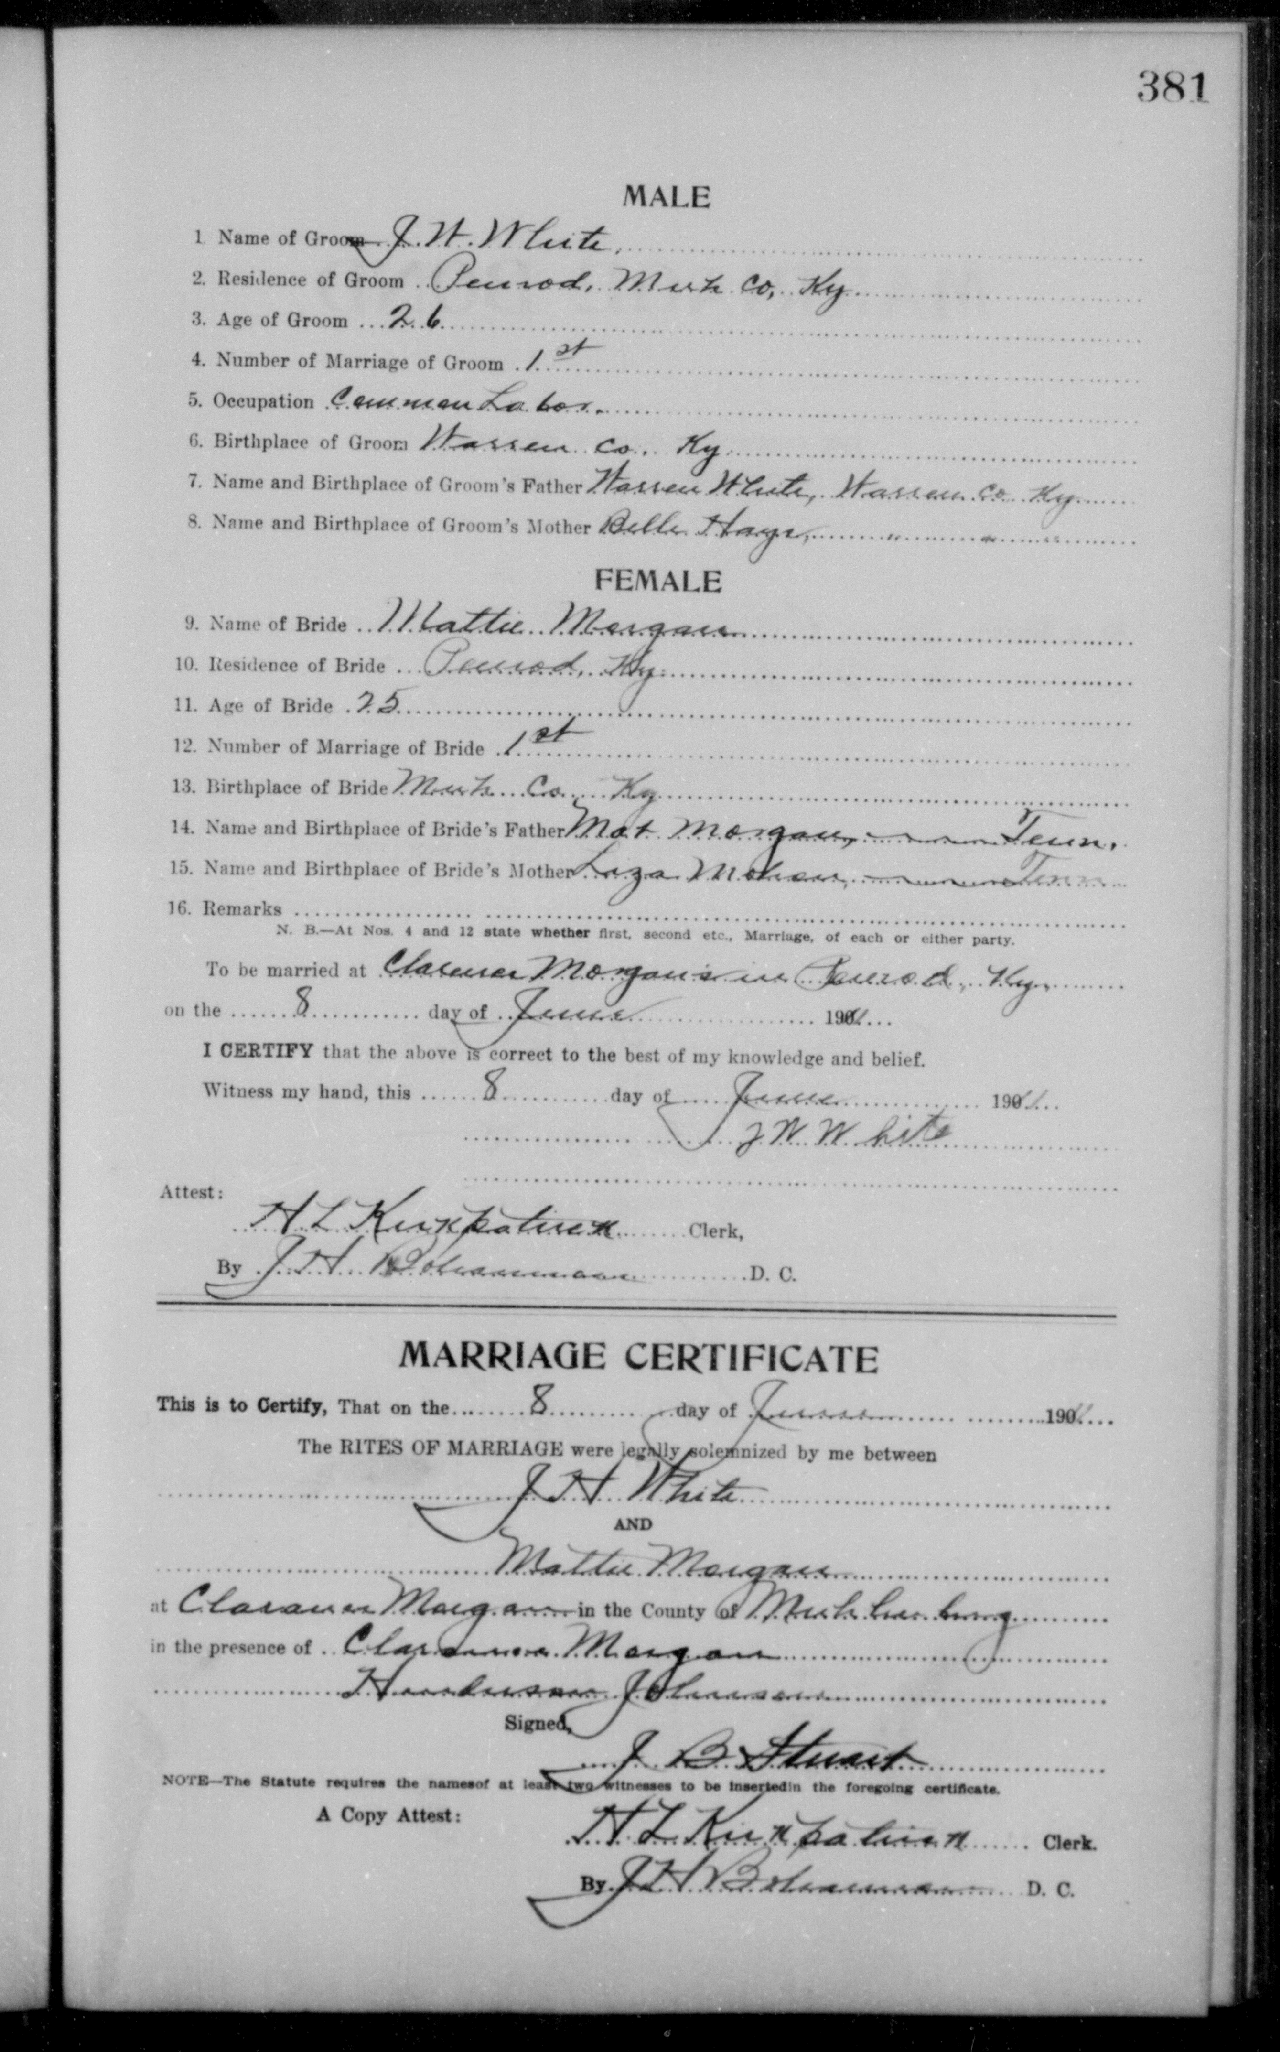 381
MALE
1 Name of Groom J. W. White,
2. Residence of Groom Penrod, Muh Co, Ky
3. Age of Groom 26
4. Number of Marriage of Groom 1st
5. Occupation Common Labor.
6. Birthplace of Groom Warren Co. Ky
7. Name and Birthplace of Groom's Father Warren White, Warren Co Ky.
8. Name and Birthplace of Groom's Mother Belle Hays, " " "
FEMALE
9. Name of Bride Mattie Morgan
10. Residence of Bride Penrod, Ky
11. Age of Bride 25
12. Number of Marriage of Bride 1st
13. Birthplace of Bride Muh Co. Ky
14. Name and Birthplace of Bride's Father Mat Morgan, Tenn.
15. Name and Birthplace of Bride's Mother Tenn
16. Remarks
N. B.—At Nos. 4 and 12 state whether first, second etc., Marriage, of each or either party.
To be married at Clarence Morgan's in Penrod, Ky.
on the 8 day of June 19
I CERTIFY that the above is correct to the best of my knowledge and belief.
Witness my hand, this 8 day of June 19
J W White
Attest:
H L Kirkpatrick Clerk,
By J H Bohannan D. C.
MARRIAGE CERTIFICATE
This is to Certify, That on the 8 day of June 19
The RITES OF MARRIAGE were legally solemnized by me between
J H White
AND
Mattie Morgan
at Clarence Morgan in the County of Muhlenburg
in the presence of Clarence Morgan
Henderson Johnson
Signed,
J B Stuart
NOTE—The Statute requires the namesof at least two witnesses to be insertedin the foregoing certificate.
A Copy Attest:
H L Kirkpatrick Clerk.
By J H Bohannan D. C.